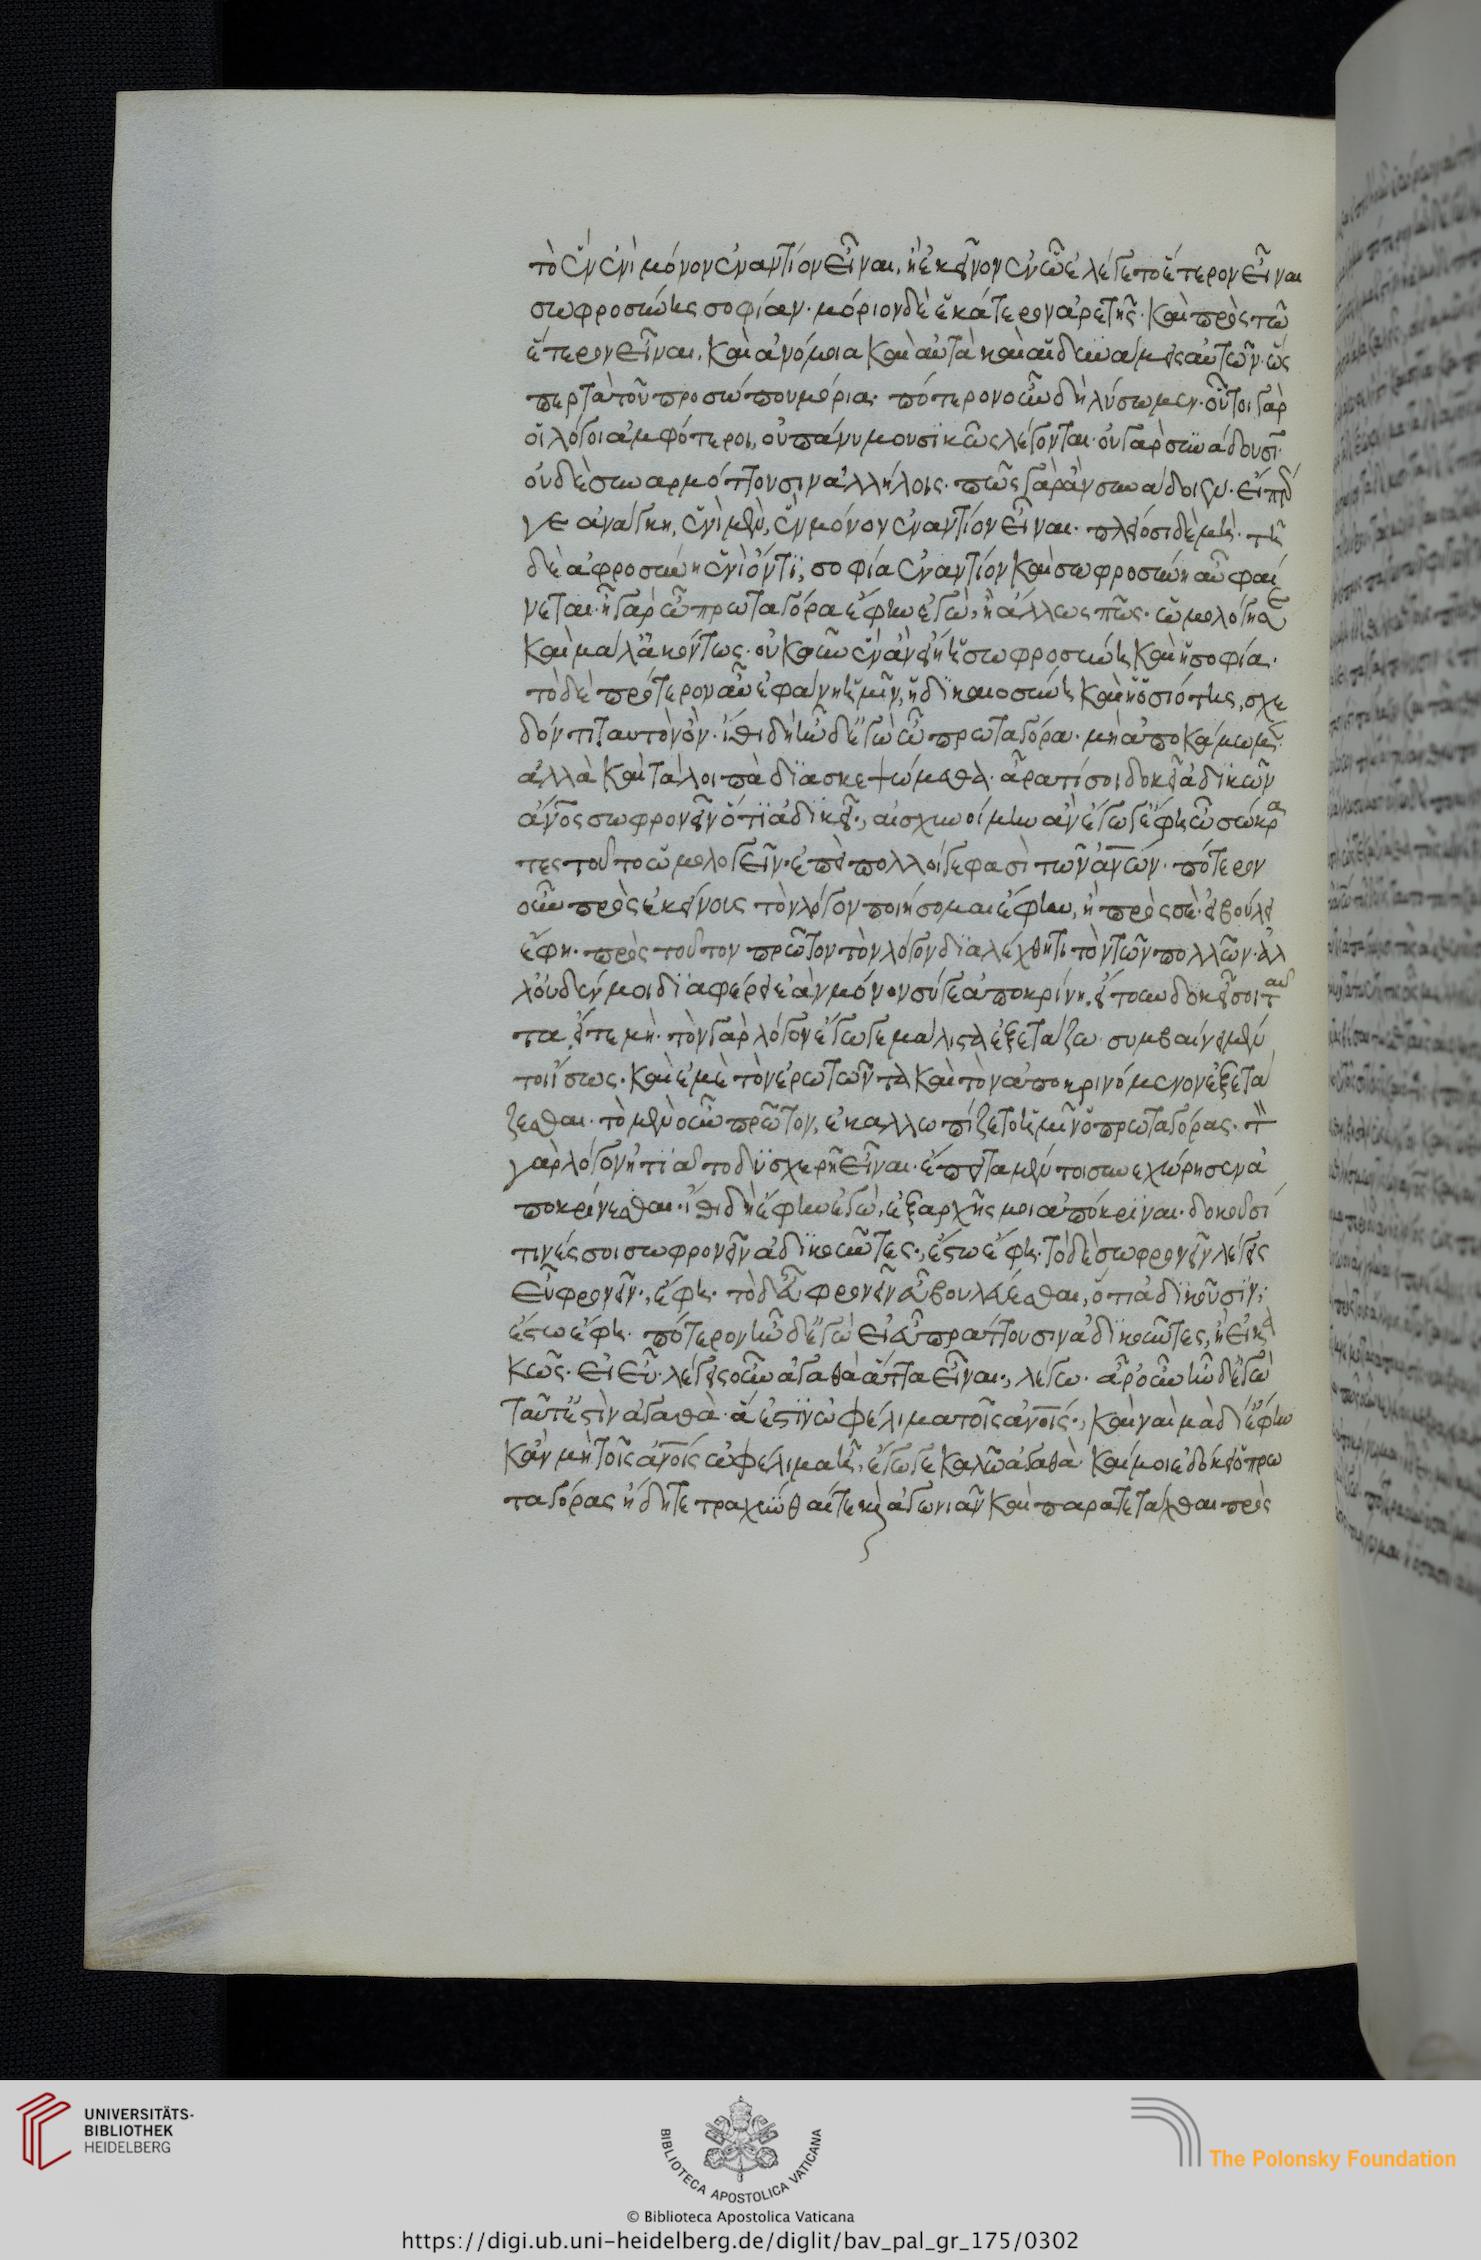 τὸ ἓν ἑνὶ μόνον ἐναντίον εἶναι, ἢ ἐκεῖνον ἐν ᾧ ἐλέγετο ἕτερον εἶναι
σωφροσύνης σοφίαν· μόριον δὲ ἑκάτερον ἀρετῆς· καὶ πρὸς τῶ
ἕτερον εἶναι, καὶ ἀνόμοια καὶ αὐτὰ καὶ αἱ δυνάμεις αὐτῶν· ὥς
περ τὰ τοῦ προσώπου μόρια· πότερον οὖν δὴ λύσωμεν· οὗτοι γὰρ
οἱ λόγοι ἀμφότεροι, οὐ πάνυ μουσικῶς λέγονται· οὐ γὰρ συνάδουσι
οὐδὲ συναρμόττουσιν ἀλλήλοις· πῶς γὰρ ἂν συνάδοιεν· εἴπερ
γε ἀνάγκη, ἑνὶ μὲν, ἓν μόνον ἐναντίον εἶναι· πλείοσι δὲ μὴ· τῆ
δὲ ἀφροσύνη ἑνὶ ὄντι, σοφία ἐναντίον καὶ σωφροσύνη αὖ φαί
νεται· ἦ γὰρ ὦ πρωταγόρα ἔφην ἐγὼ, ἢ ἄλλως πως· ὡμολόγησε
καὶ μάλα ἀκόντως· οὐκοῦν ἓν ἂν εἴη ἡ σωφροσύνη καὶ ἡ σοφία·
τὸ δὲ πρότερον αὖ ἐφάνη ἡμῖν, ἡ δικαιοσύνη καὶ ἡ ὁσιότης, σχε
δόν τι ταυτὸν ὄν· ἴθι δὴ ἦν δ' ἐγὼ ὦ πρωταγόρα· μὴ ἀποκάμωμεν·
ἀλλὰ καὶ τὰ λοιπὰ διασκεψώμεθα· ἆρα τί σοι δοκεῖ ἀδικῶν
ἄνος σωφρονεῖν ὅτι ἀδικεῖ·, αἰσχυνοίμην ἂν ἔγωγε ἔφη ὦ σώκρα
τες τοῦτο ὡμολογεῖν· ἐπεὶ πολλοί γέ φασι τῶν ἀνων· πότερον
οὖν πρὸς ἐκείνους τὸν λόγον ποιήσομαι ἔφην, ἢ πρὸς σὲ· εἰ βούλει
ἔφη· πρὸς τοῦτον πρῶτον τὸν λόγον διαλέχθητι τὸν τῶν πολλῶν· ἀλ
λ' οὐδέν μοι διαφέρει ἐὰν μόνον σύ γε ἀποκρίνη, εἴτ' οὖν δοκεῖ σοι ταῦ
τα εἴτε μὴ· τὸν γὰρ λόγον ἔγωγε μάλιστα ἐξετάζω· συμβαίνει μέν
τοι ἴσως· καὶ ἐμὲ τὸν ἐρωτῶντα καὶ τὸν ἀποκρινόμενον ἐξετά
ζεσθαι· τὸ μὲν οὖν πρῶτον, ἐκαλλωπίζετο ἡμῖν ὁ πρωταγόρας· τὸν
γὰρ λόγον ἠτιᾶτο δυσχερῆ εἶναι· ἔπειτα μέν τοι συνεχώρησεν ἀ
ποκρίνεσθαι· ἴθι δὴ ἔφην ἐγὼ, ἐξαρχῆς μοι ἀπόκριναι· δοκοῦσί
τινές σοι σωφρονεῖν ἀδικοῦντες·, ἔστω ἔφη· τὸ δὲ σωφρονεῖν λέγεις
εὖ φρονεῖν·, ἔφη· τὸ δ' εὖ φρονεῖν εὖ βουλεύεσθαι, ὅτι ἀδικοῦσιν;
ἔστω ἔφη· πότερον ἦν δ' ἐγὼ εἰ εὖ πράττουσιν ἀδικοῦντες, ἢ εἰ κα
κῶς· εἰ εὖ· λέγεις οὖν ἀγαθὰ ἄττα εἶναι·, λέγω· ἆρ' οὖν ἦν δ' ἐγὼ
ταῦτ' ἔστιν ἀγαθὰ· ἅ ἐστιν ὠφέλιμα τοῖς ἀνοις·, καὶ ναὶ μὰ δί' ἔφην
κἂν μὴ τοῖς ἀνοις ὠφέλιμα ἦ, ἔγωγε καλῶ ἀγαθὰ· καί μοι ἐδόκει ὁ πρω
ταγόρας ἤδη τετραχύνθαί τε καὶ ἀγωνιᾶν καὶ παρατετάχθαι πρὸς
UNIVERSITÄTS-
BIBLIOTHEK
HEIDELBERG
BIBLIOTECA APOSTOLICA VATICANA
The Polonsky Foundation
© Biblioteca Apostolica Vaticana
https://digi.ub.uni-heidelberg.de/diglit/bav_pal_gr_175/0302